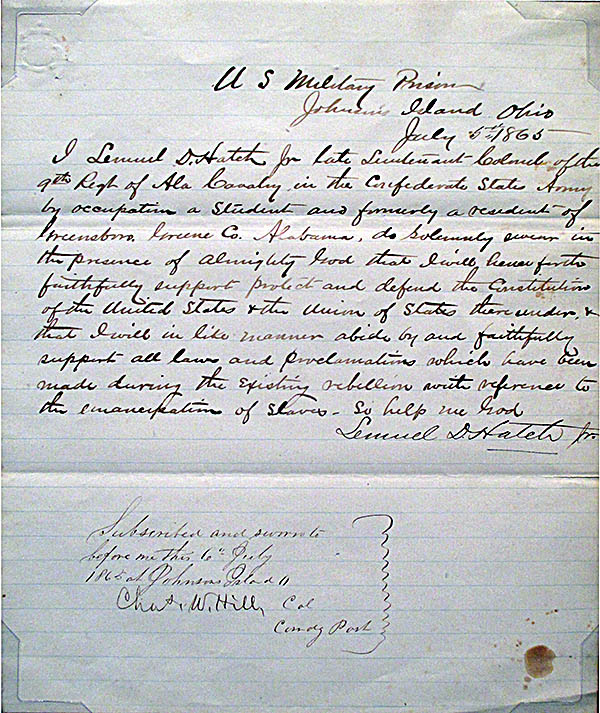 U S Military Prison
Johnsons Island Ohio
July 5th 1865
I Lemuel D. Hatch Jr late Lieutenant Colonel of the
9th Regt of Ala Cavalry, in the Confederate States Army
by occupation a Student and formerly a resident of
Greensboro, Greene Co. Alabama, do Solemnly swear in
the presence of Almighty God that I will henceforth
faithfully support protect and defend the Constitution
of the United States & the Union of States thereunder, &
that I will in like manner abide by and faithfully
support all laws and Proclamations which have been
made during the Existing rebellion with reference to
the emancipation of Slaves - So help me God
Lemuel D. Hatch Jr.
Subscribed and sworn to
before me this 6th July
1865 at Johnsons Island O
Chas. W. Hill, Col
Comdg Post